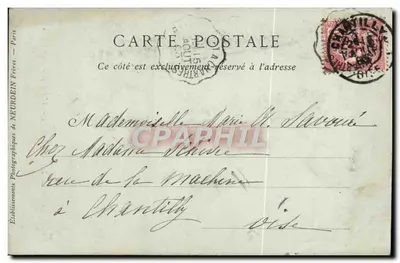 CARTE POSTALE
Ce côté est exclusivement réservé à l'adresse
CHANTILLY
Mademoiselle Marie
Chez Madame
rue de la Machine
à Chantilly
Oise
CPAPHIL
Établissements Photographiques de NEURDEIN Frères. — Paris